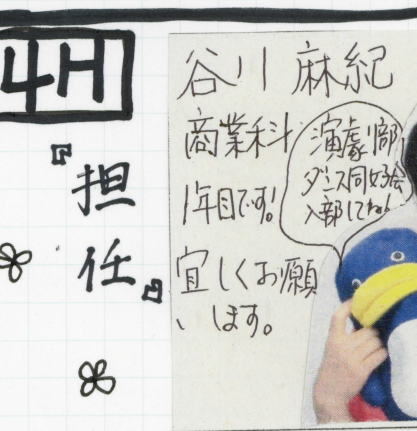 4H
『担任』
谷川 麻紀
商業科
1年目です!
宜しくお願
います。
演劇部
ダンス同好会
入部してね!